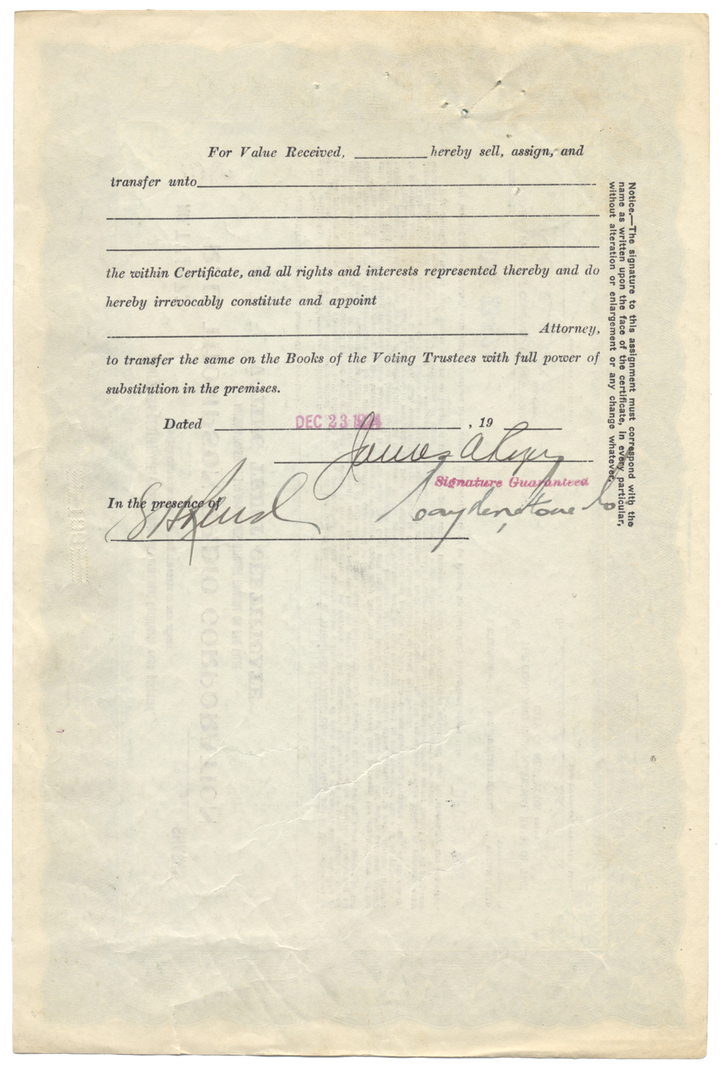 For Value Received, ________ hereby sell, assign, and
transfer unto
the within Certificate, and all rights and interests represented thereby and do
hereby irrevocably constitute and appoint
Attorney,
to transfer the same on the Books of the Voting Trustees with full power of
substitution in the premises.
Dated DEC 23 1924, 19
James A
Signature Guaranteed
In the presence of
Notice.—The signature to this assignment must correspond with the
name as written upon the face of the certificate, in every particular,
without alteration or enlargement or any change whatever.